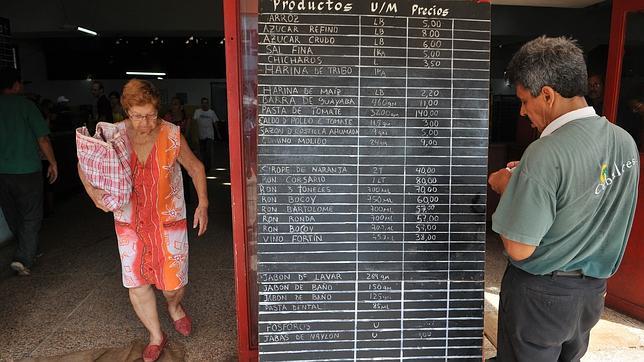 Productos U/M Precios
ARROZ LB 5,00
AZUCAR REFINO LB 8,00
AZUCAR CRUDO LB 6,00
SAL FINA 1Kg 5,00
CHICHAROS L 3,50
HARINA DE TRIGO 1Kg
HARINA DE MAIZ L 2,20
BARRA DE GUAYABA 460gm 11,00
PASTA DE TOMATE 3200gm 140,00
CALDO D POLLO C TOMATE 3,00
SAZON D COSTILLA AHUMADA 9gm 5,00
COMINO MOLIDO 9,00
CIROPE DE NARANJA 40,00
RON CORSARIO 1LT 80,00
RON 3 TONELES 700ML 70,00
RON BOCOY 750ML 60,00
RON BARTOLOME 700ML
RON RONDA 700ML 57,00
RON BOCOY
VINO FORTIN 38,00
JABON DE LAVAR
JABON DE BAÑO 150gm
JABON DE BAÑO 125gm
PASTA DENTAL
FOSFOROS U
JABAS DE NAYLON U